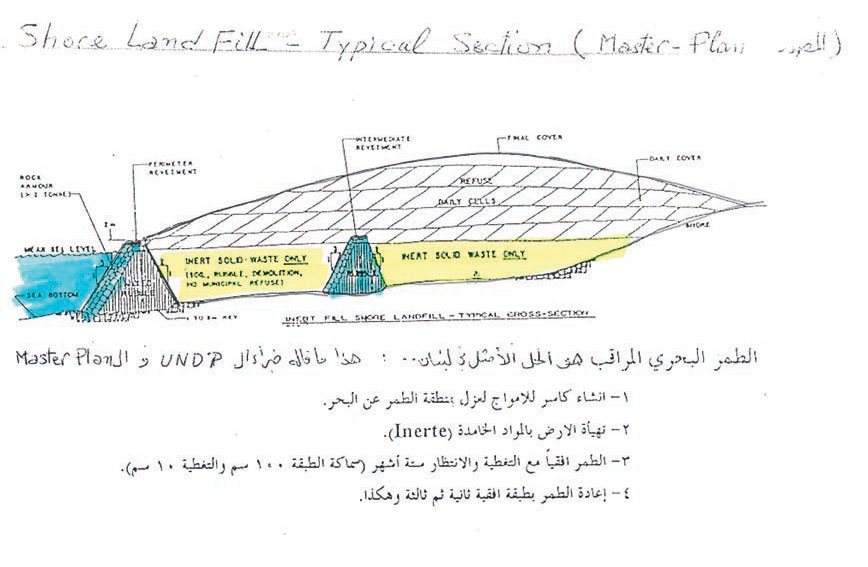 Shore Land Fill - Typical Section (Master-Plan
INTERMEDIATE
REVETMENT
FINAL COVER
PERIMETER
REVETMENT
DAILY COVER
ROCK
ARMOUR
REFUSE
DAILY CELLS
SHORE
MEAN SEA LEVEL
INERT SOLID WASTE ONLY
(SOIL, RUBBLE, DEMOLITION,
NO MUNICIPAL REFUSE)
RUBBLE
INERT SOLID WASTE ONLY
RUBBLE
SEA BOTTOM
KEY
INERT FILL SHORE LANDFILL - TYPICAL CROSS-SECTION
الطمر البحري المراقب هو الحل الأمثل في لبنان... : هذا ما قاله خبراء الـ UNDP و الـ Master Plan
١- انشاء كاسر للامواج لعزل منطقة الطمر عن البحر.
٢- تهيأة الارض بالمواد الخامدة (Inerte).
٣- الطمر افقياً مع التغطية والانتظار ستة أشهر (سماكة الطبقة ١٠٠ سم والتغطية ١٠ سم).
٤- إعادة الطمر بطبقة افقية ثانية ثم ثالثة وهكذا.